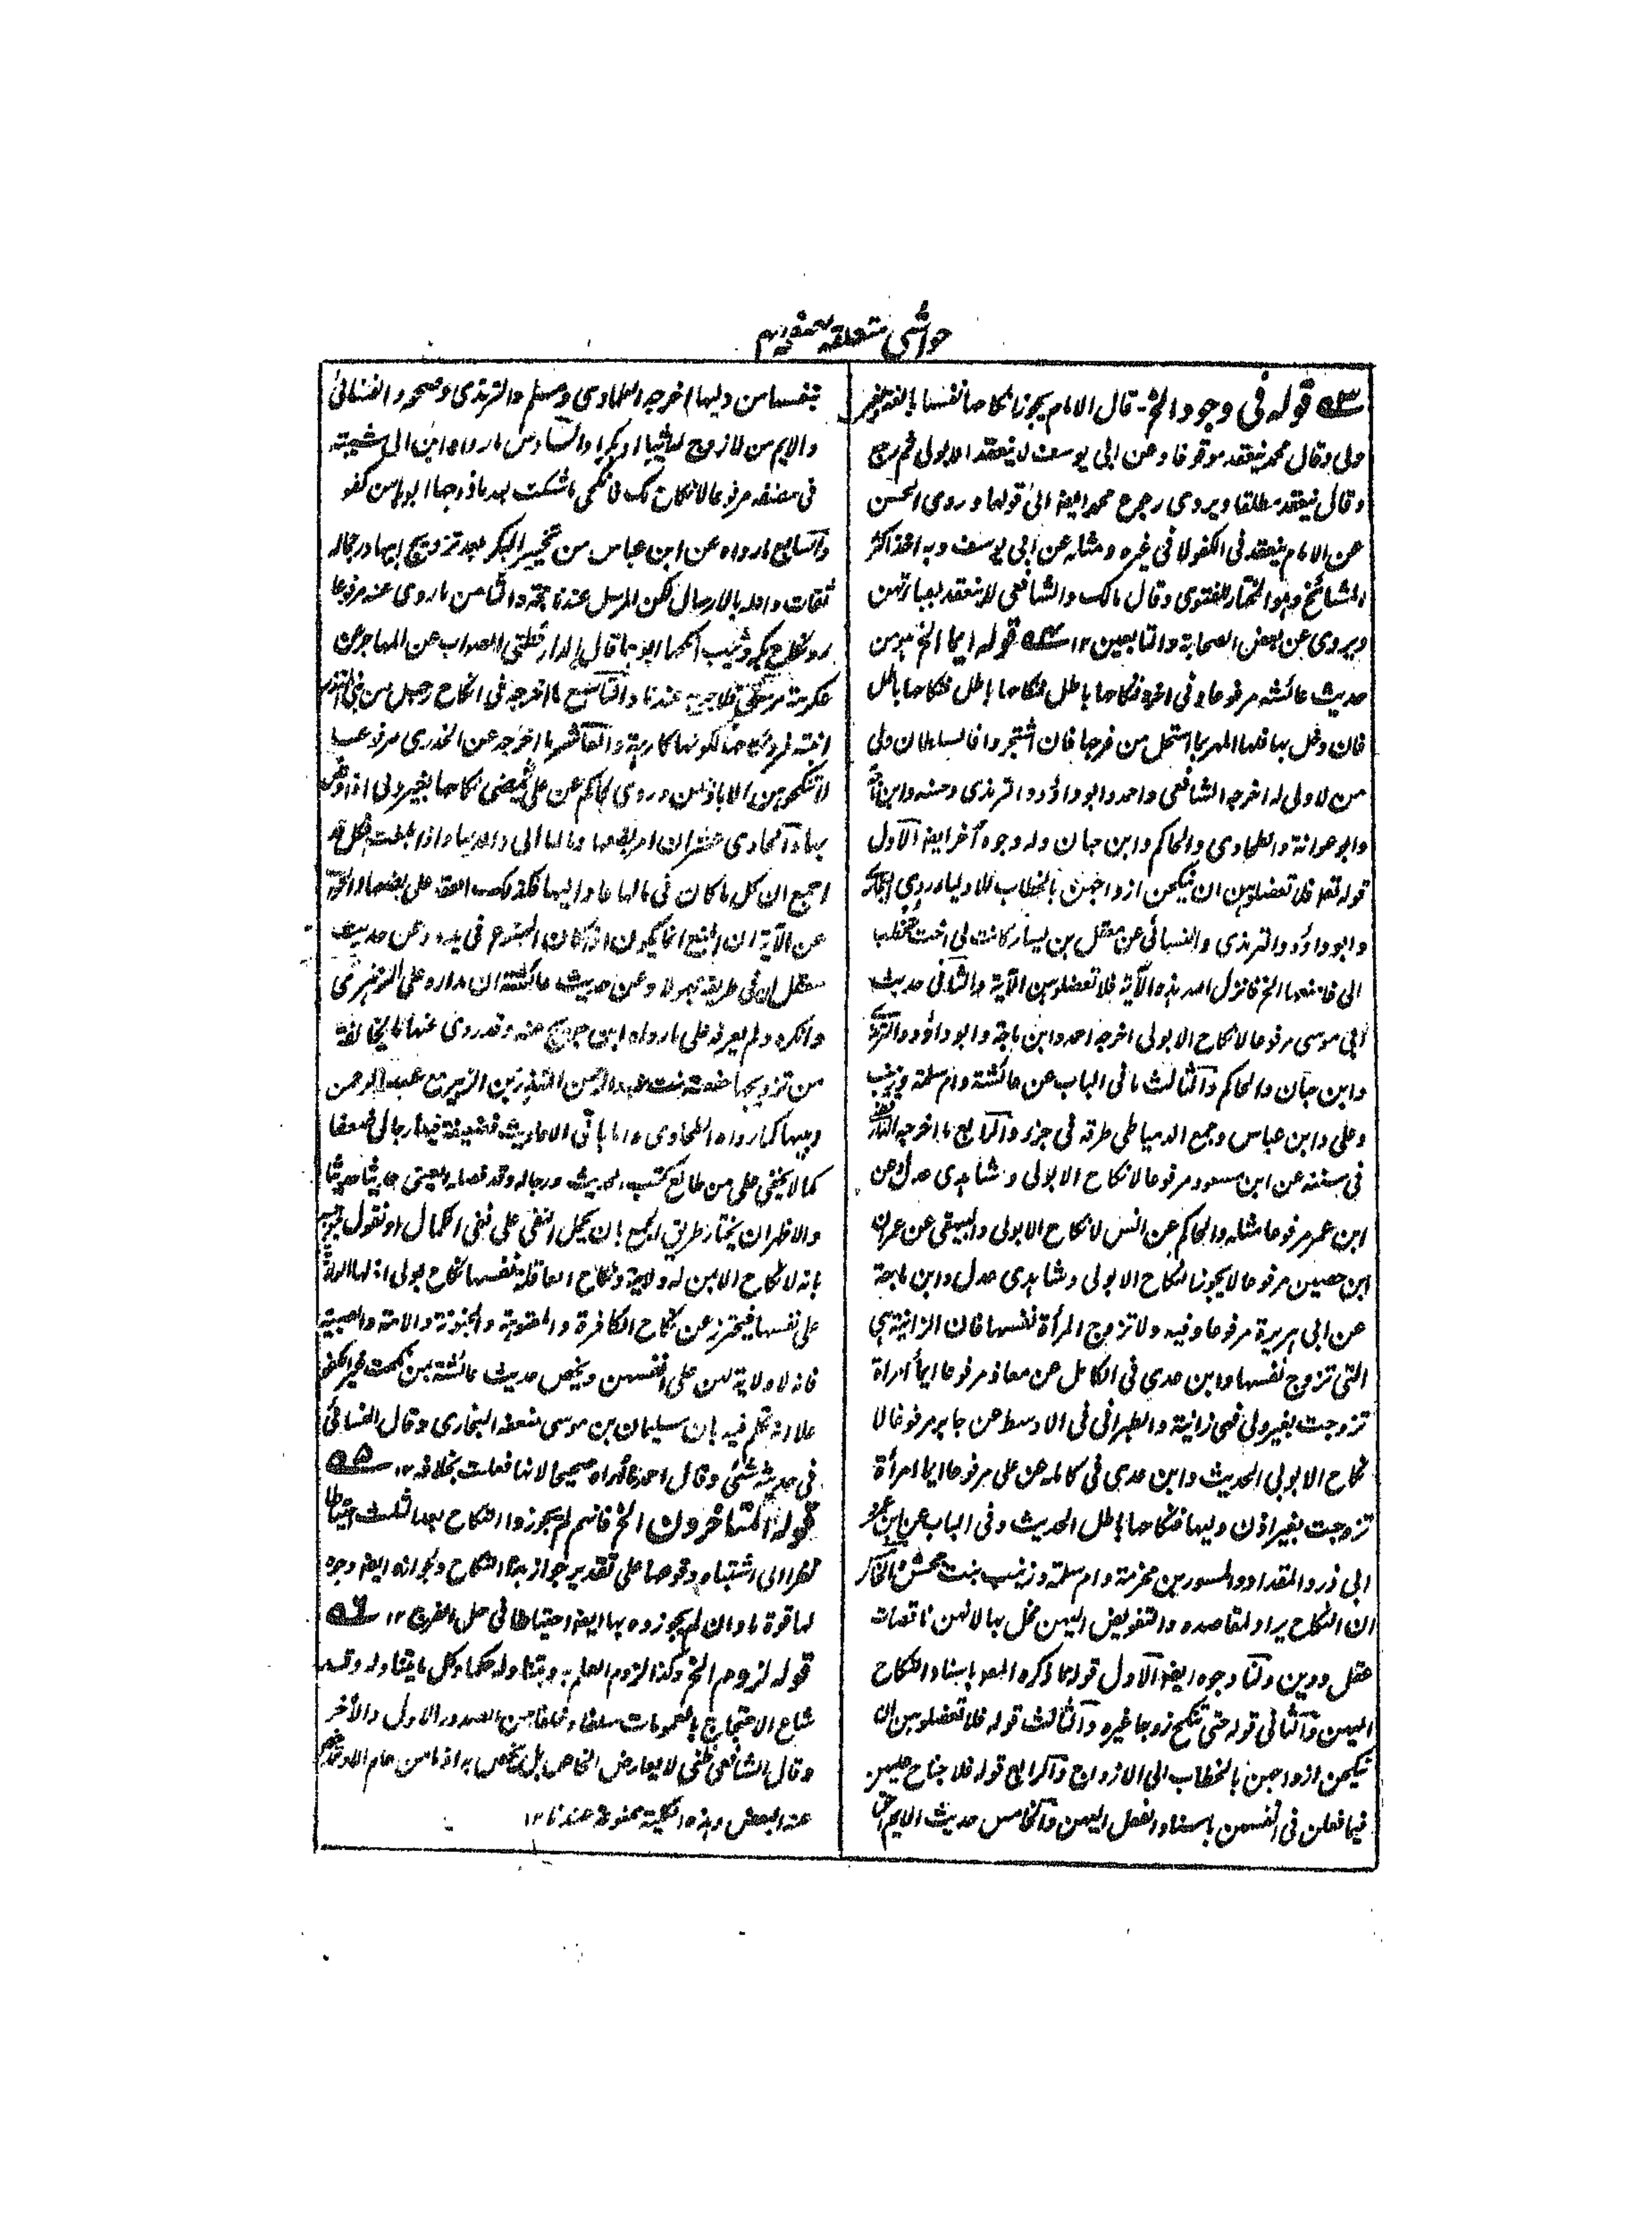 حواشی متعلقہ صفحہ
۵۳ قوله فی وجود الخ۔ قال الامام یجوز نکاحها نفسها بالغة بغیر
ولی وقال محمد ینعقد موقوفا وعن ابی یوسف لا ینعقد الا بولی ثم رجع
وقال ینعقد مطلقا ویروی رجوع محمد ایضا الی قولهما وروی الحسن
عن الامام ینعقد فی الکفو لا فی غیره ومثله عن ابی یوسف وبه اخذ اکثر
المشائخ وهو المختار للفتوی وقال مالک والشافعی لا ینعقد بعبارتهن
ویروی عن بعض الصحابة والتابعین ۱۲ ۵۴ قوله ایما الخ هو من
حدیث عائشة مرفوعا وفی اخره فنکاحها باطل فنکاحها باطل فنکاحها باطل
فان دخل بها فلها المهر بما استحل من فرجها فان اشتجروا فالسلطان ولی
من لا ولی له اخرجه الشافعی واحمد وابو داؤد والترمذی وحسنه وابن ماجة
وابو عوانة والطحاوی والحاکم وابن حبان وله وجوه اخر ایضا الاول
قوله تعالی فلا تعضلوهن ان ینکحن ازواجهن بالخطاب للاولیاء وروی
وابو داؤد والترمذی والنسائی عن معقل بن یسار کانت لی اخت تخطب
الی فامنعها الخ فانزل الله هذه الآیة فلا تعضلوهن الآیة والثانی حدیث
ابی موسی مرفوعا لا نکاح الا بولی اخرجه احمد وابن ماجة وابو داؤد والترمذی
وابن حبان والحاکم والثالث ما فی الباب عن عائشة وام سلمة وزینب
وعلی وابن عباس وجمع الدمیاطی طرقه فی جزء والرابع ما اخرجه
فی سننه عن ابن مسعود مرفوعا لا نکاح الا بولی وشاهدی عدل وعن
ابن عمر مرفوعا مثله والحاکم عن انس لا نکاح الا بولی والبیهقی عن عمران
ابن حصین مرفوعا لا یجوز النکاح الا بولی وشاهدی عدل وابن ماجة
عن ابی هریرة مرفوعا وفیه ولا تزوج المرأة نفسها فان الزانیة هی
التی تزوج نفسها وابن عدی فی الکامل عن معاذ مرفوعا ایما امرأة
تزوجت بغیر ولی فهی زانیة والطبرانی فی الاوسط عن جابر مرفوعا لا
نکاح الا بولی الحدیث وابن عدی فی کامله عن علی مرفوعا ایما امرأة
تزوجت بغیر اذن ولیها فنکاحها باطل الحدیث وفی الباب عن ابن عمر
ابی ذر والمقداد والمسور بن مخرمة وام سلمة وزینب بنت جحش
ان النکاح یراد لمقاصده والتفویض الیهن مخل بها لانهن ناقصات
عقل ودین ولنا وجوه ایضا الاول قوله ما ذکره المص باسناد النکاح
الیهن والثانی قوله حتی تنکح زوجا غیره والثالث قوله فلا تعضلوهن ان
ینکحن ازواجهن بالخطاب الی الازواج والرابع قوله فلا جناح علیهن
فیما فعلن فی انفسهن باسناد الفعل الیهن والخامس حدیث الایم احق
بنفسها من ولیها اخرجه الطحاوی ومسلم والترمذی وصححه والنسائی
والایم من لا زوج لها ثیبا او بکرا والسادس ما رواه ابن ابی شیبة
فی مصنفه مرفوعا لا نکاح لک فانکحی ما شئت بعد ما زوجها ابوها من کفو
والسابع ما رواه عن ابن عباس من تخییر البکر بعد تزویج ابیها ورجاله
ثقات واعله بالارسال لکن المرسل عندنا حجة والثامن ما روی عنه مرفوعا
رد نکاح بکر وثیب انکحها ابوهما قال الدارقطنی الصواب عن المهاجر عن
عکرمة مرسل قلا جرح عندنا والتاسع ما اخرجه فی انکاح رجل من بنی المنذر
ابنته کارهة والعاشر ما اخرجه عن الخدری مرفوعا
لا تنکحوهن الا باذنهن وروی الحاکم عن علی نکاحها بغیر ولی اذا دخل
بها والحادی عشر ان امر بضعها ومالها الی والدیها واذا بلغت فکل قد
اجمع ان کل ما کان فی مالها عاد الیها فکذلک العقد علی بضعها والجواب
عن الآیة ان المنع انما یکون اذا کان الممنوع فی یده وعن حدیث
معقل ان فی طریقه مجهولا وعن حدیث عائشة ان مداره علی الزهری
وانکره ولم یعرفه علی ما رواه ابن جریج عنه وقد روی عنها ما یخالفه
من تزویجها حفصة بنت عبد الرحمن المنذر بن الزبیر مع غیبة عبد الرحمن
وبیها کما رواه الطحاوی واما باقی الاحادیث فضعیفة فیها رجال ضعفا
کما لا یخفی علی من طالع کتب الحدیث ورجاله وقد فصله العینی حدیثا حدیثا
والاظهر ان یختار طریق الجمع بان یحمل النفی علی نفی الکمال او نقول بموجبه
بانه لا نکاح الا بمن له ولایة ونکاح العاقلة نفسها نکاح بولی اذ لها الولایة
علی نفسها فیحترز عن نکاح الکافرة والمعتوهة والمجنونة والامة والصبیة
فانه لا ولایة لهن علی انفسهن ویخص حدیث عائشة بمن نکحت غیر الکفو
علا انه تکلم فیه بان سلیمان بن موسی ضعفه البخاری وقال النسائی
فی حدیثه شئ وقال احمد ما اراه صحیحا لانها فعلت بخلافه ۱۲ ۵۵
قوله المتاخرون الخ فانهم لم یجوزوا النکاح بعد الثلث احتیاطا
نظرا الی اشتباه وقوعها علی تقدیر جواز هذا النکاح ولجوازه ایضا وجوه
لها قوة ما وان لم یجوزوه بها ایضا احتیاطا فی حل الفرج ۱۲ ۵۶
قوله لزوم الخ وکذا لزوم العلم به وبتناوله حکما وکل ما یتناوله وقد
شاع الاحتجاج بالعمومات سلفا وخلفا من الصدور الاول والاخر
وقال الشافعی ظنی لا یعارض الخاص بل یخص به اذ ما من عام الا وقد خص
عنه البعض وهذه الکلیة ممنوعة عندنا ۱۲